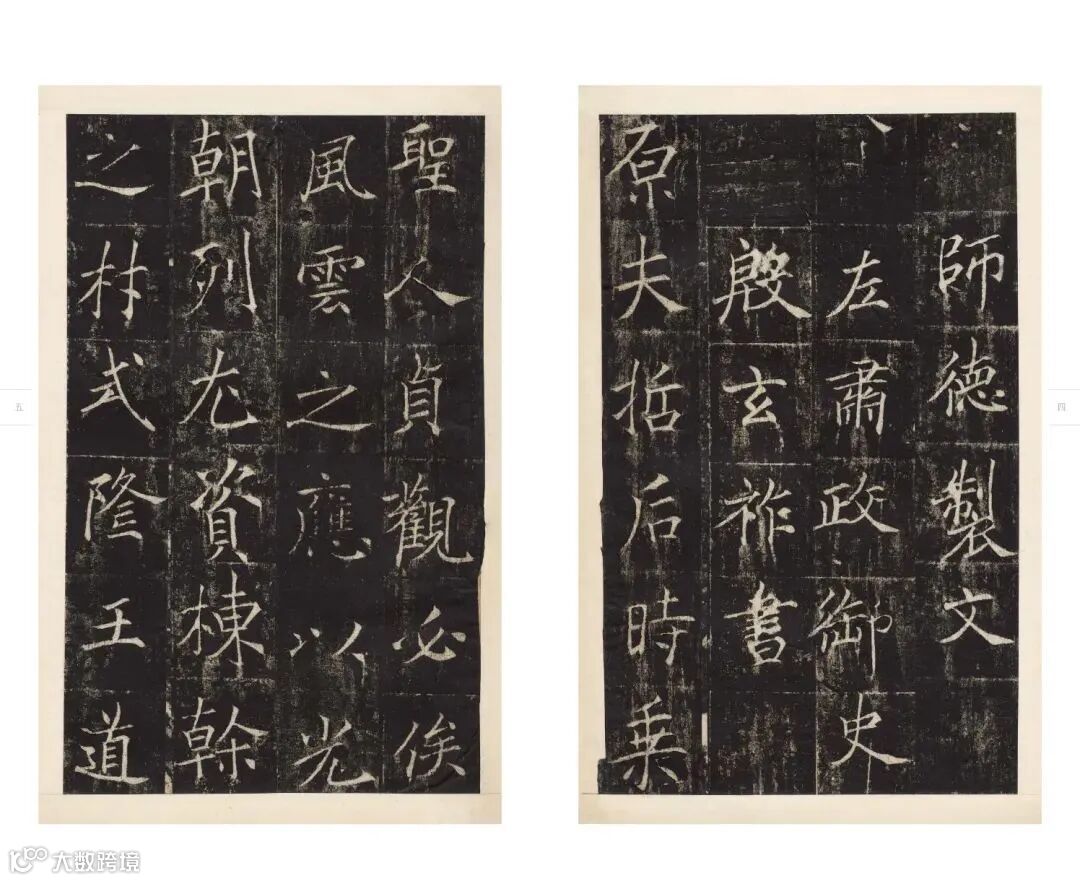 師德製文
左肅政御史
殷玄祚書
原夫哲后時乗
聖人貞觀必俟
風雲之應以光
朝列尤資棟幹
之材式隆王道
四
五
大数跨境